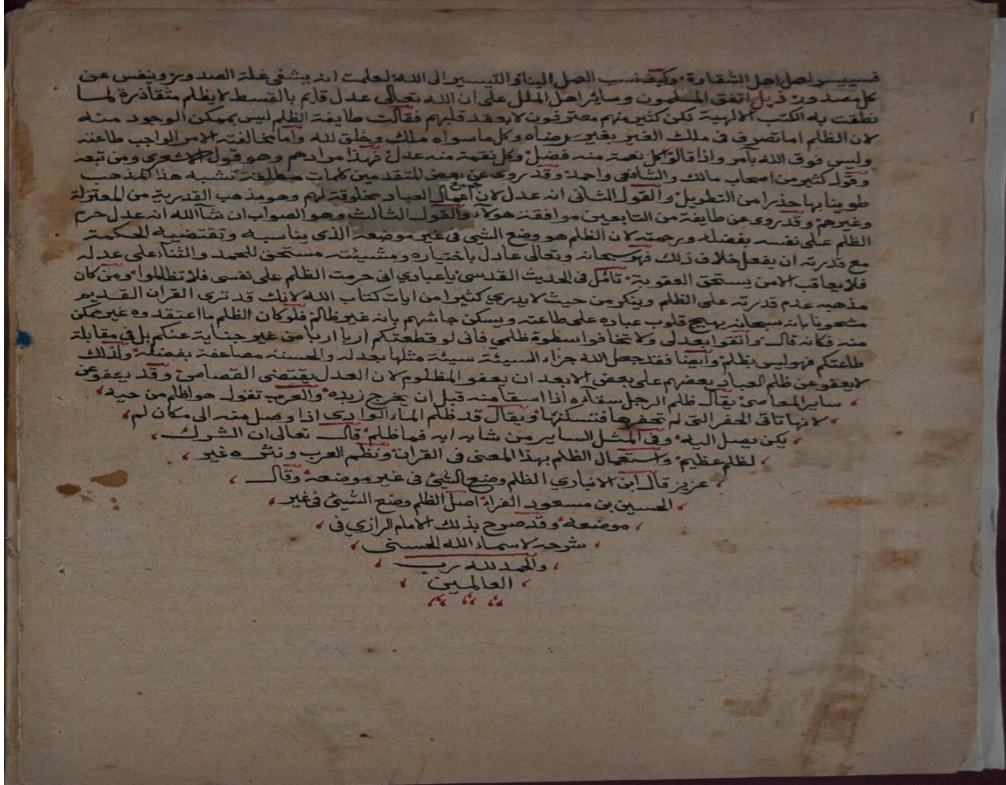 فسييسر لعمل اهل الشقاوة وكيف نسب العمل الينا والتيسير الى الله لعلمت انه يشفي غلة الصدور وينفس عن
كل مصدور ذيل اتفق المسلمون وسائر اهل الملل على ان الله تعالى عدل قايم بالقسط لا يظلم مثقال ذرة لما
نطقت به الكتب الالهية لكن كثير منهم معترفون لا بعقد قلبهم فقالت طايفة الظلم ليس بممكن الوجود منه
لان الظلم اما تصرف في ملك الغير بغير رضاه وكل ما سواه ملك وخلق لله واما مخالفته الامر الواجب طاعته
وليس فوق الله بآمر واذا قالوا كل نعمة منه فضل وكل نقمة منه عدل فهذا مرادهم وهو قول الاشعري ومن تبعه
وقول كثير من اصحاب مالك والشافعي واحمد وقد روي عن بعض المتقدمين كلمات مطلقة تشبه هذا المذهب
طوينا بها حذرا من التطويل والقول الثاني انه عدل لان جميع اعمال العباد مخلوقة لهم وهو مذهب القدرية من المعتزلة
وغيرهم وقد روي عن طايفة من التابعين موافقة هولاء والقول الثالث وهو الصواب ان شا الله انه عدل حرم
الظلم على نفسه بفضله ورحمته لان الظلم هو وضع الشي في غير موضعه الذي يناسبه وتقتضيه الحكمة
مع قدرته ان يفعل خلاف ذلك فهو سبحانه وتعالى عادل باختياره ومشيئته مستحق للحمد والثناء على عدله
فلا يعاقب الا من يستحق العقوبة تامل في الحديث القدسي يا عبادي اني حرمت الظلم على نفسي فلا تظالموا ومن كان
مذهبه عدم قدرته على الظلم وينكر من حيث لا يدري كثيرا من ايات كتاب الله لانك قد ترى القران القديم
مشحونا بانه سبحانه يهيج قلوب عباده على طاعته ويسكن جاشهم بانه غير ظالم فلو كان الظلم ما اعتقدوه غير ممكن
منه فكانه قال واتقوا بعدلي ولا تخافوا سطوة ظلمي فاني لو قطعتكم اربا اربا من غير جناية عنكم بل في مقابلة
طاعتكم فهو ليس بظلم وايضا فقد جعل الله جزاء السيئة سيئة مثلها بعدله والحسنة مضاعفة بفضله ولذلك
لا يعفو عن ظلم العباد بعضهم على بعض الا بعد ان يعفو المظلوم لان العدل يقتضي القصاص وقد يعفو عن
ساير المعاصي يقال ظلم الرجل سقاءه اذا اسقا منه قبل ان يخرج زبده والعرب تقول هو اظلم من حية
لانها تاتي الحفر التي لم تحفرها فتسكنها ويقال قد ظلم الماء الوادي اذا وصل منه الى مكان لم
يكن يصل اليه وفي المثل الساير من شابه ابه فما ظلم قال تعالى ان الشرك
لظلم عظيم واستعمال الظلم بهذا المعنى في القران ونظم العرب ونثره غير
عزيز قال ابن الانباري الظلم وضع الشئ في غير موضعه وقال
الحسين بن مسعود الفراء اصل الظلم وضع الشئ في غير
موضعه وقد صرح بذلك الامام الرازي في
شرحه لاسماء الله الحسنى
والحمد لله رب
العالمين